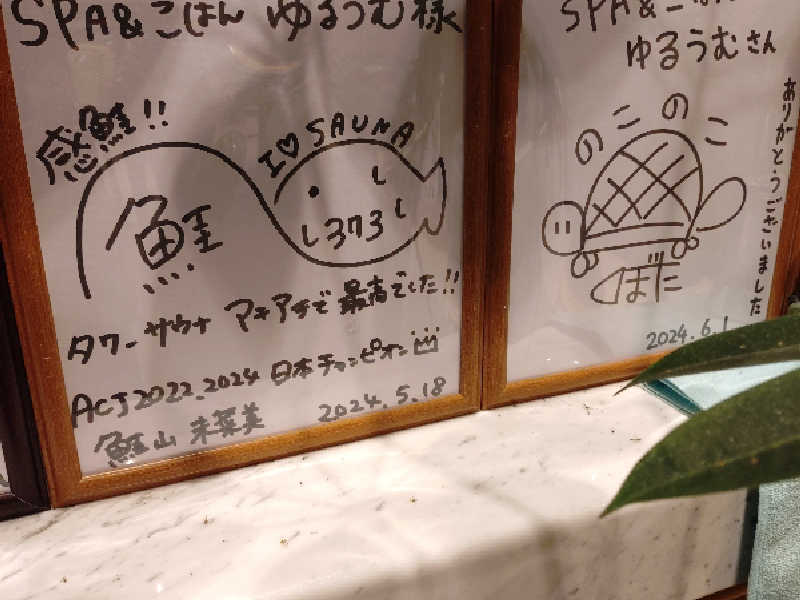 SPA&ごはん ゆるうむ様
感鮭!!
I♡SAUNA
鮭
し373し
タワーサウナ アチアチで 最高でした!!
ACJ2022.2024 日本チャンピオン
鮭山 未菜美 2024.5.18
SPA&ごはん
ゆるうむさん
のこのこ
くぼた
ありがとうございました
2024.6.1